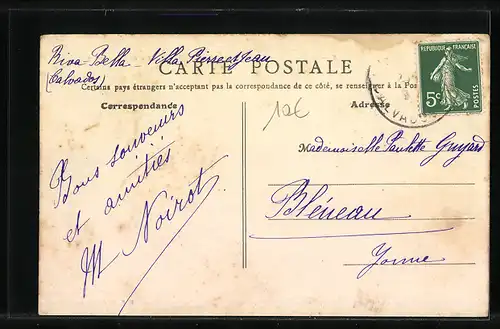 Riva Bella Villa Pierre et Jean
(Calvados)
CARTE POSTALE
Certains pays étrangers n'acceptent pas la correspondance de ce côté, se renseigner à la Pos
Correspondance
Adresse
RÉPUBLIQUE FRANÇAISE
5c
12€
Bons souvenirs
et amitiés
M Noirot
Mademoiselle Paulette Guyard
Bléneau
Yonne